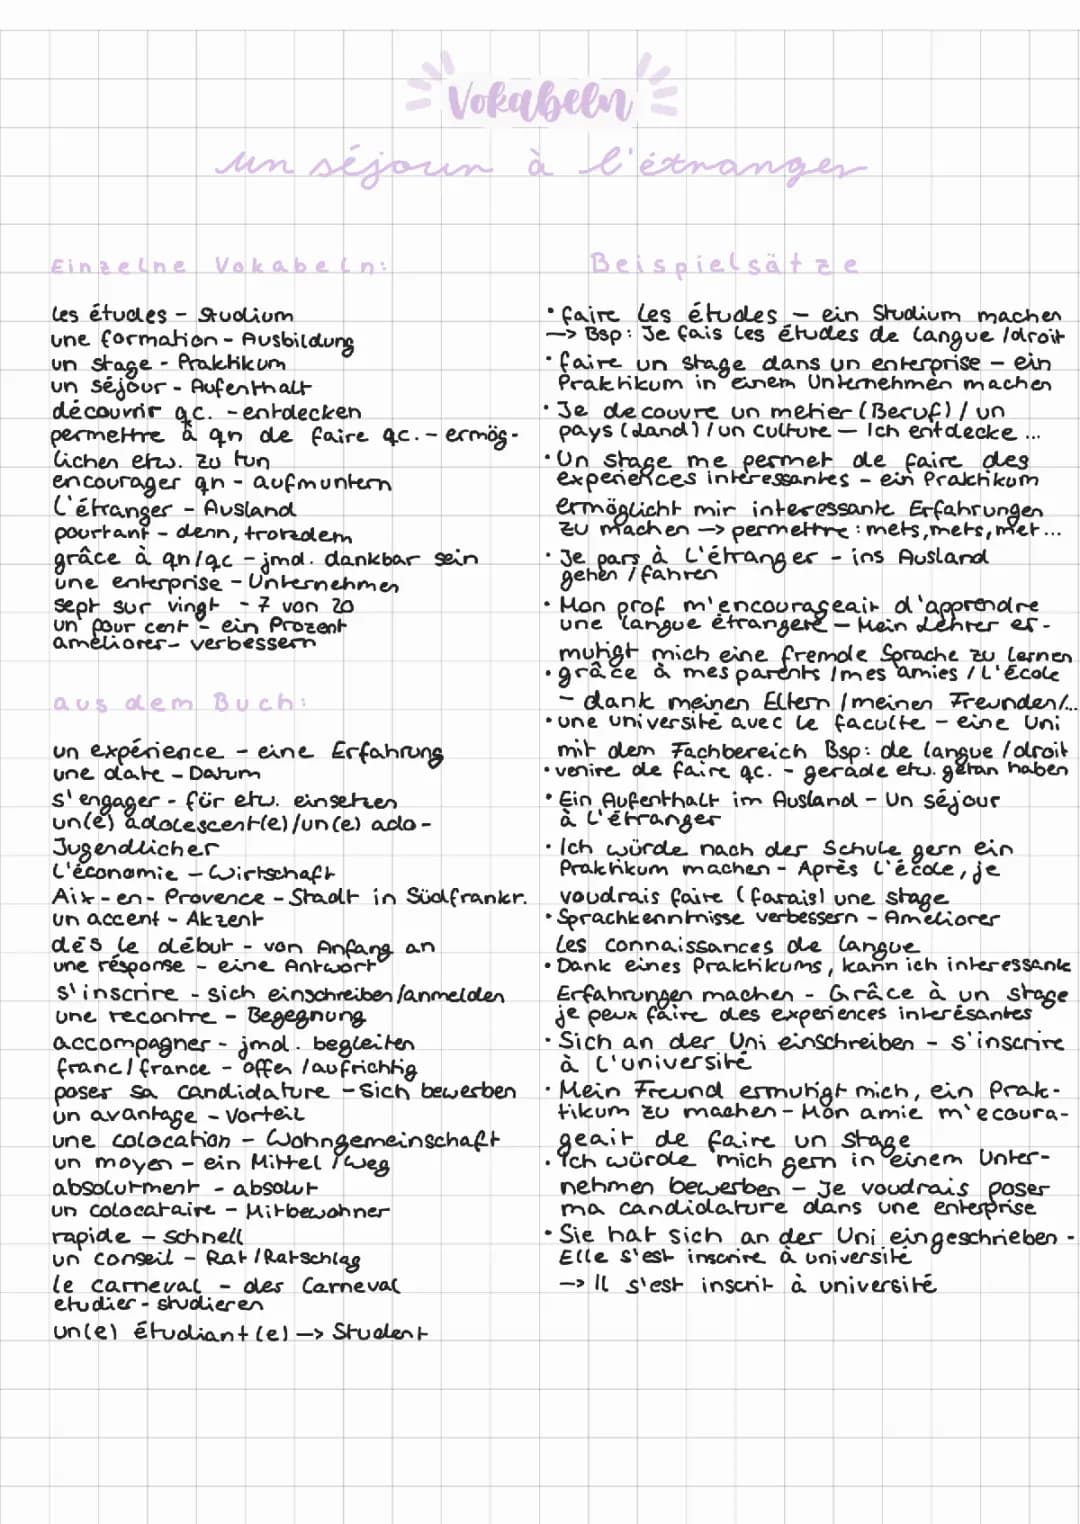 Vokabeln
un séjour à l'étranger
Einzelne Vokabeln:
les études - Studium
une formation - Ausbildung
un stage - Praktikum
un séjour - Aufenthalt
découvrir qc. - entdecken
permettre à qn de faire qc. - ermög-
lichen etw. zu tun
encourager qn - aufmuntern
L'étranger - Ausland
pourtant - denn, trotzdem
grâce à qn/qc - jmd. dankbar sein
une enterprise - Unternehmen
sept sur vingt - 7 von 20
un pour cent - ein Prozent
améliorer - verbessern
aus dem Buch:
un expérience - eine Erfahrung
une date - Datum
s'engager - für etw. einsetzen
un(e) adolescent(e)/un(e) ado -
Jugendlicher
L'économie - Wirtschaft
Aix-en-Provence - Stadt in Südfrankr.
un accent - Akzent
dés le début - von Anfang an
une résponse - eine Antwort
s'inscrire - sich einschreiben/anmelden
une recontre - Begegnung
accompagner - jmd. begleiten
franc/france - offen/aufrichtig
poser sa candidature - sich bewerben
un avantage - Vorteil
une colocation - Wohngemeinschaft
un moyen - ein Mittel/Weg
absolutment - absolut
un colocataire - Mitbewohner
rapide - schnell
un conseil - Rat/Ratschlag
le carneval - der Carneval
etudier - studieren
un(e) étudiant(e) → Student
Beispielsätze
• faire les études - ein Studium machen
→ Bsp: Je fais les études de langue/droit
• faire un stage dans un enterprise - ein
Praktikum in einem Unternehmen machen
• Je decouvre un metier (Beruf) / un
pays (Land) / un culture - Ich entdecke ...
• Un stage me permet de faire des
experiences interessantes - ein Praktikum
ermöglicht mir interessante Erfahrungen
zu machen → permettre: mets, mets, met ...
• Je pars à L'étranger - ins Ausland
gehen / fahren
• Mon prof m'encourageait d'apprendre
une langue étrangere - Mein Lehrer er-
mutigt mich eine fremde Sprache zu lernen
• grâce à mes parents / mes amies / L'École
- dank meinen Eltern / meinen Freunden/...
• une université avec le faculte - eine Uni
mit dem Fachbereich Bsp: de langue/droit
• venire de faire qc. - gerade etw. getan haben
• Ein Aufenthalt im Ausland - Un séjour
à L'étranger
• Ich würde nach der Schule gern ein
Praktikum machen - Après l'école, je
voudrais faire (farais) une stage
• Sprachkenntnisse verbessern - Améliorer
les connaissances de langue
• Dank eines Praktikums, kann ich interessante
Erfahrungen machen - Grâce à un stage
je peux faire des experiences interésantes
• Sich an der Uni einschreiben - s'inscrire
à L'université
• Mein Freund ermutigt mich, ein Prak-
tikum zu machen - Mon amie m'ecoura-
geait de faire un stage
• Ich würde mich gern in einem Unter-
nehmen bewerben - Je voudrais poser
ma candidature dans une enterprise
• Sie hat sich an der Uni eingeschrieben -
Elle s'est inscrire à université
→ Il s'est inscrit à université